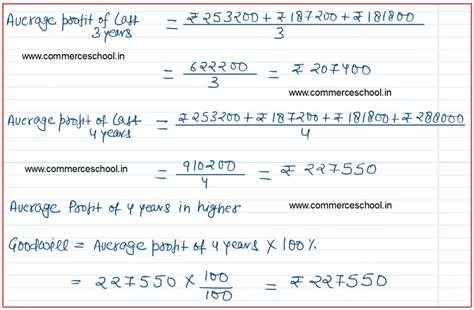 Average profit of Last 3 years = ₹253200 + ₹187200 + ₹181800 / 3
www.commerceschool.in
= 622200 / 3 = ₹207400
www.commerceschool.in
Average profit of Last 4 years = ₹253200 + ₹187200 + ₹181800 + ₹288000 / 4
www.commerceschool.in
= 910200 / 4 = ₹227550
Average Profit of 4 years in higher
www.commerceschool.in
Goodwill = Average profit of 4 years × 100%
= 227550 × 100 / 100 = ₹227550